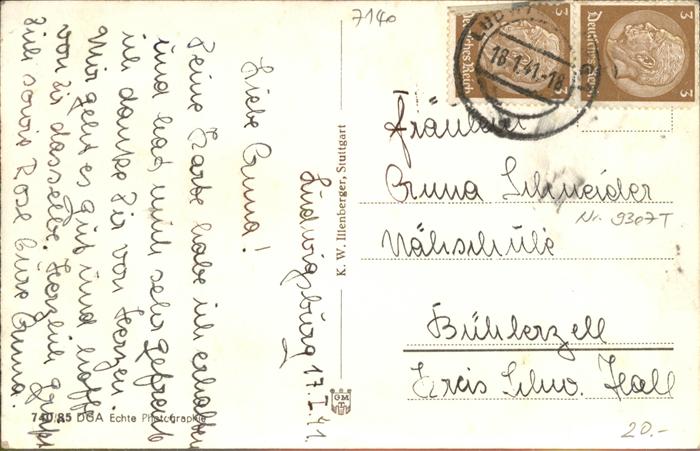 Ludwigsburg 17.I.41.
Liebe Emma!
Deine Karte habe ich erhalten
und hat mich sehr gefreut
ich danke Dir von Herzen.
Mir geht es gut und hoffe
von Dir dasselbe. Herzlich grüßt
Dich sowie Rosl Eure Emma.
740/85 DGA Echte Photographie
K. W. Illenberger, Stuttgart
GM
7140
3
Deutsches Reich
3
Deutsches Reich
18.1.41.-18
Fräulein
Emma Schneider
Nr. 9307T
Nähschule
Bühlerzell
Kreis Schw. Hall
20.-